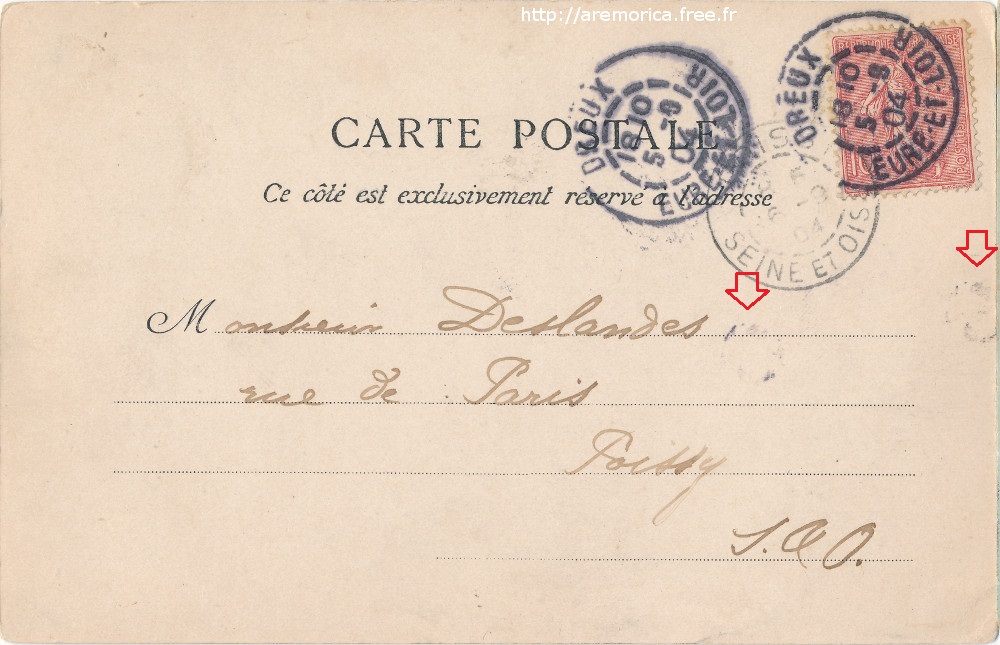 http://aremorica.free.fr
DREUX
18 10
5 -9
04
EURE-ET-LOIR
DREUX
18 10
5 -9
04
EURE-ET-LOIR
POSTES
10
CARTE POSTALE
Ce côté est exclusivement réservé à l'adresse
04
SEINE ET OISE
Monsieur Deslandes
rue de Paris
Poissy
S. & O.